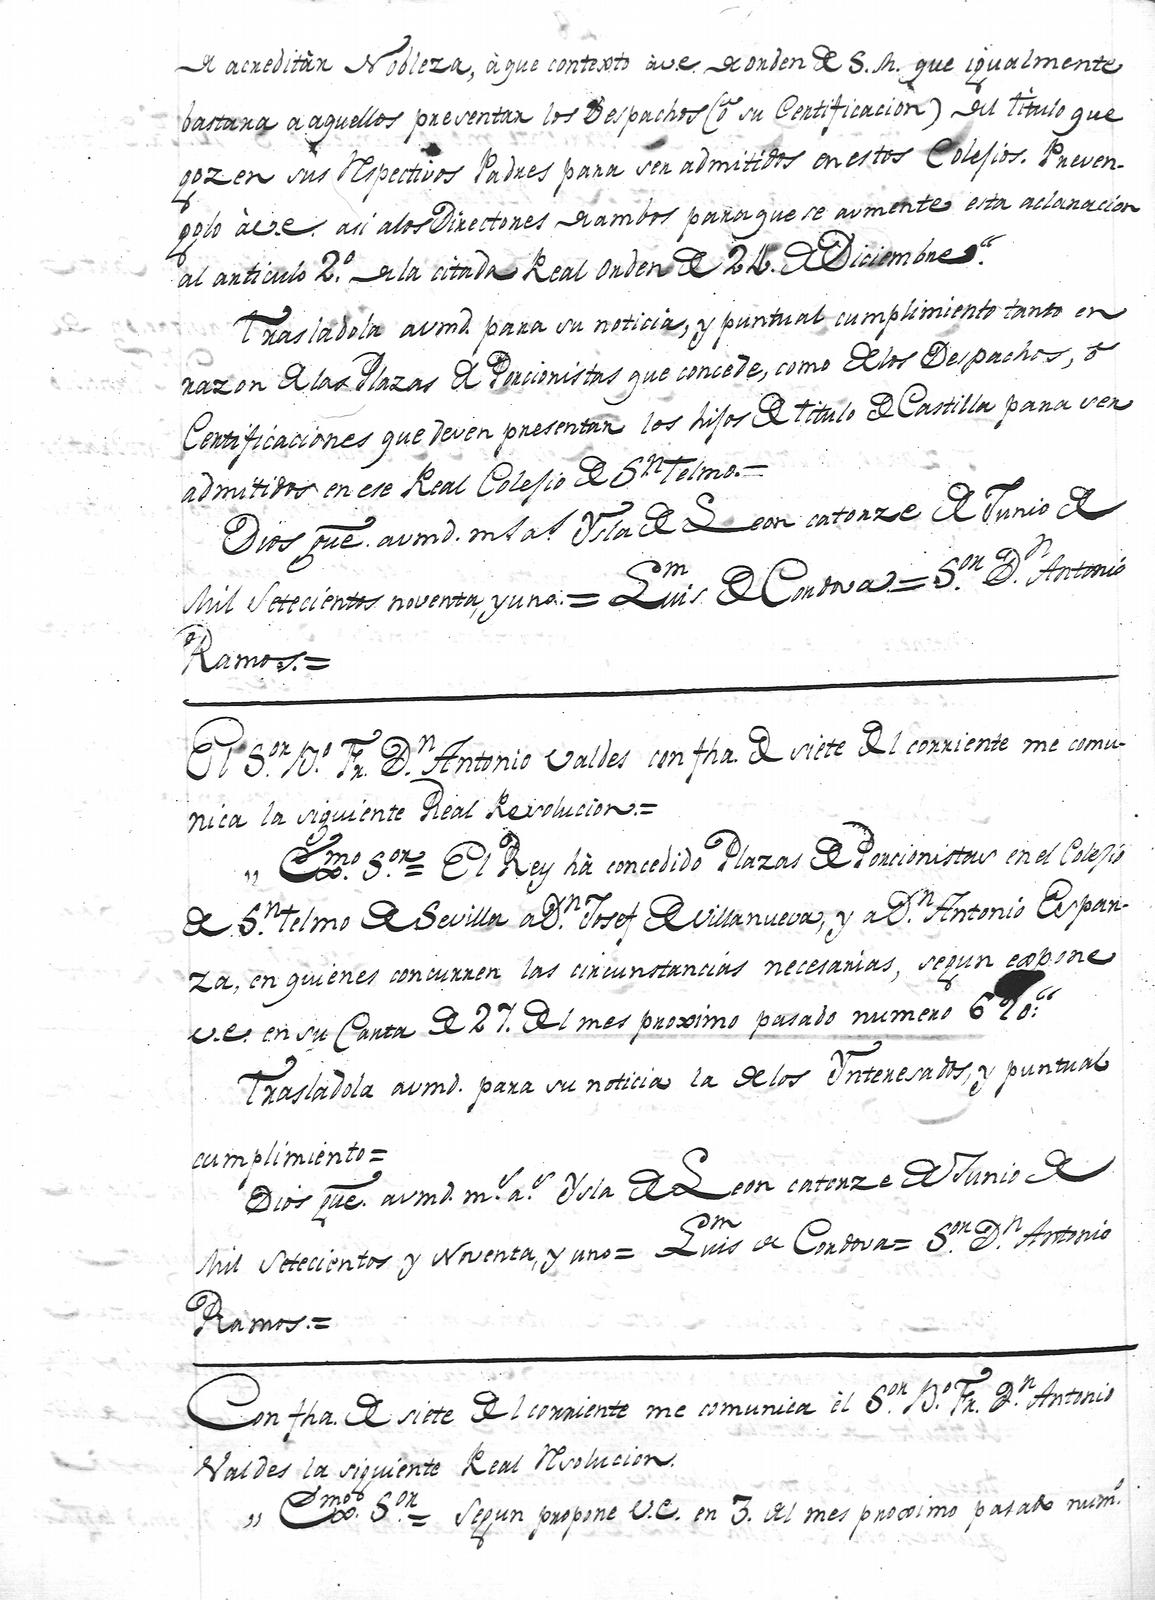 de acreditàr Nobleza, à que contexto à v.e. de orden de S. M. que igualmente
bastara a aquellos presentar los Despachos (ô su Certificacion) del titulo que
gozen sus respectivos Padres para ser admitidos en estos Colesios. Preven-
golo à v.e. asi a los Directores de ambos para que se aumente esta aclaracion
al articulo 2.º de la citada Real orden de 24. de Diciembre.“
Trasladola a vmd. para su noticia, y puntual cumplimiento tanto en
razon de las Plazas de Porcionistas que concede, como de los Despachos, ô
Certificaciones que deven presentar los hijos de titulo de Castilla para ser
admitidos en ese Real Colesio de S.n Telmo.=
Dios gue. a vmd. m.s a.s Ysla de Leon catorze de Junio de
Mil Setecientos noventa, y uno.= Luis de Cordova.= S.or D.n Antonio
Ramos.=
El S.or B.o Fr. D.n Antonio Valdes con fha. de siete del corriente me comu-
nica la siguiente Real Resolucion.=
„ Exmo. S.or= El Rey hà concedido Plazas de Porcionistas en el Colesio
de S.n Telmo de Sevilla a D.n Josef de Villanueva, y a D.n Antonio Espar-
za, en quienes concurren las circunstancias necesarias, segun expone
v.e. en su Carta de 27. del mes proximo pasado numero 620.“
Trasladola a vmd. para su noticia la de los Ynteresados, y puntual
cumplimiento=
Dios gue. a vmd. m.s a.s Ysla de Leon catorze de Junio de
Mil Setecientos y Noventa, y uno= Luis de Cordova= S.or D.n Antonio
Ramos.=
Con fha. de siete del corriente me comunica el S.or B.o Fr. D.n Antonio
Valdes la siguiente Real Resolucion.
„ Exmo. S.or= Segun propone v.e. en 3. del mes proximo pasado num.o